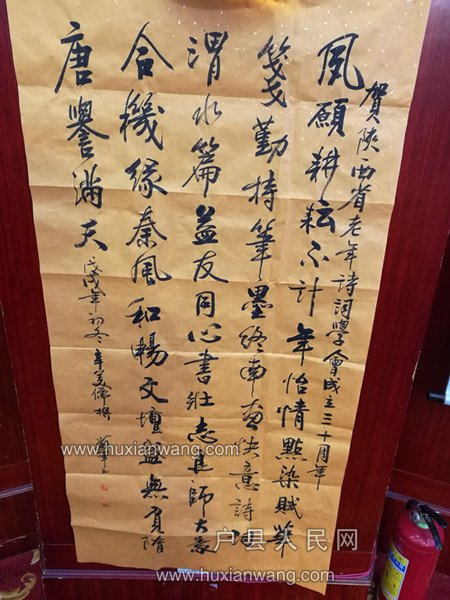 賀陝西省老年詩詞學會成立三十周年
夙願耕耘不計年怡情點染賦華
箋勤持筆墨終南畫快意詩
渭水篇益友同心書壯志良師大義
合機緣秦風和暢文壇盛無負隋
唐譽滿天
戊戌年初冬
www.huxianwang.com
户县人民网
www.huxianwang.com